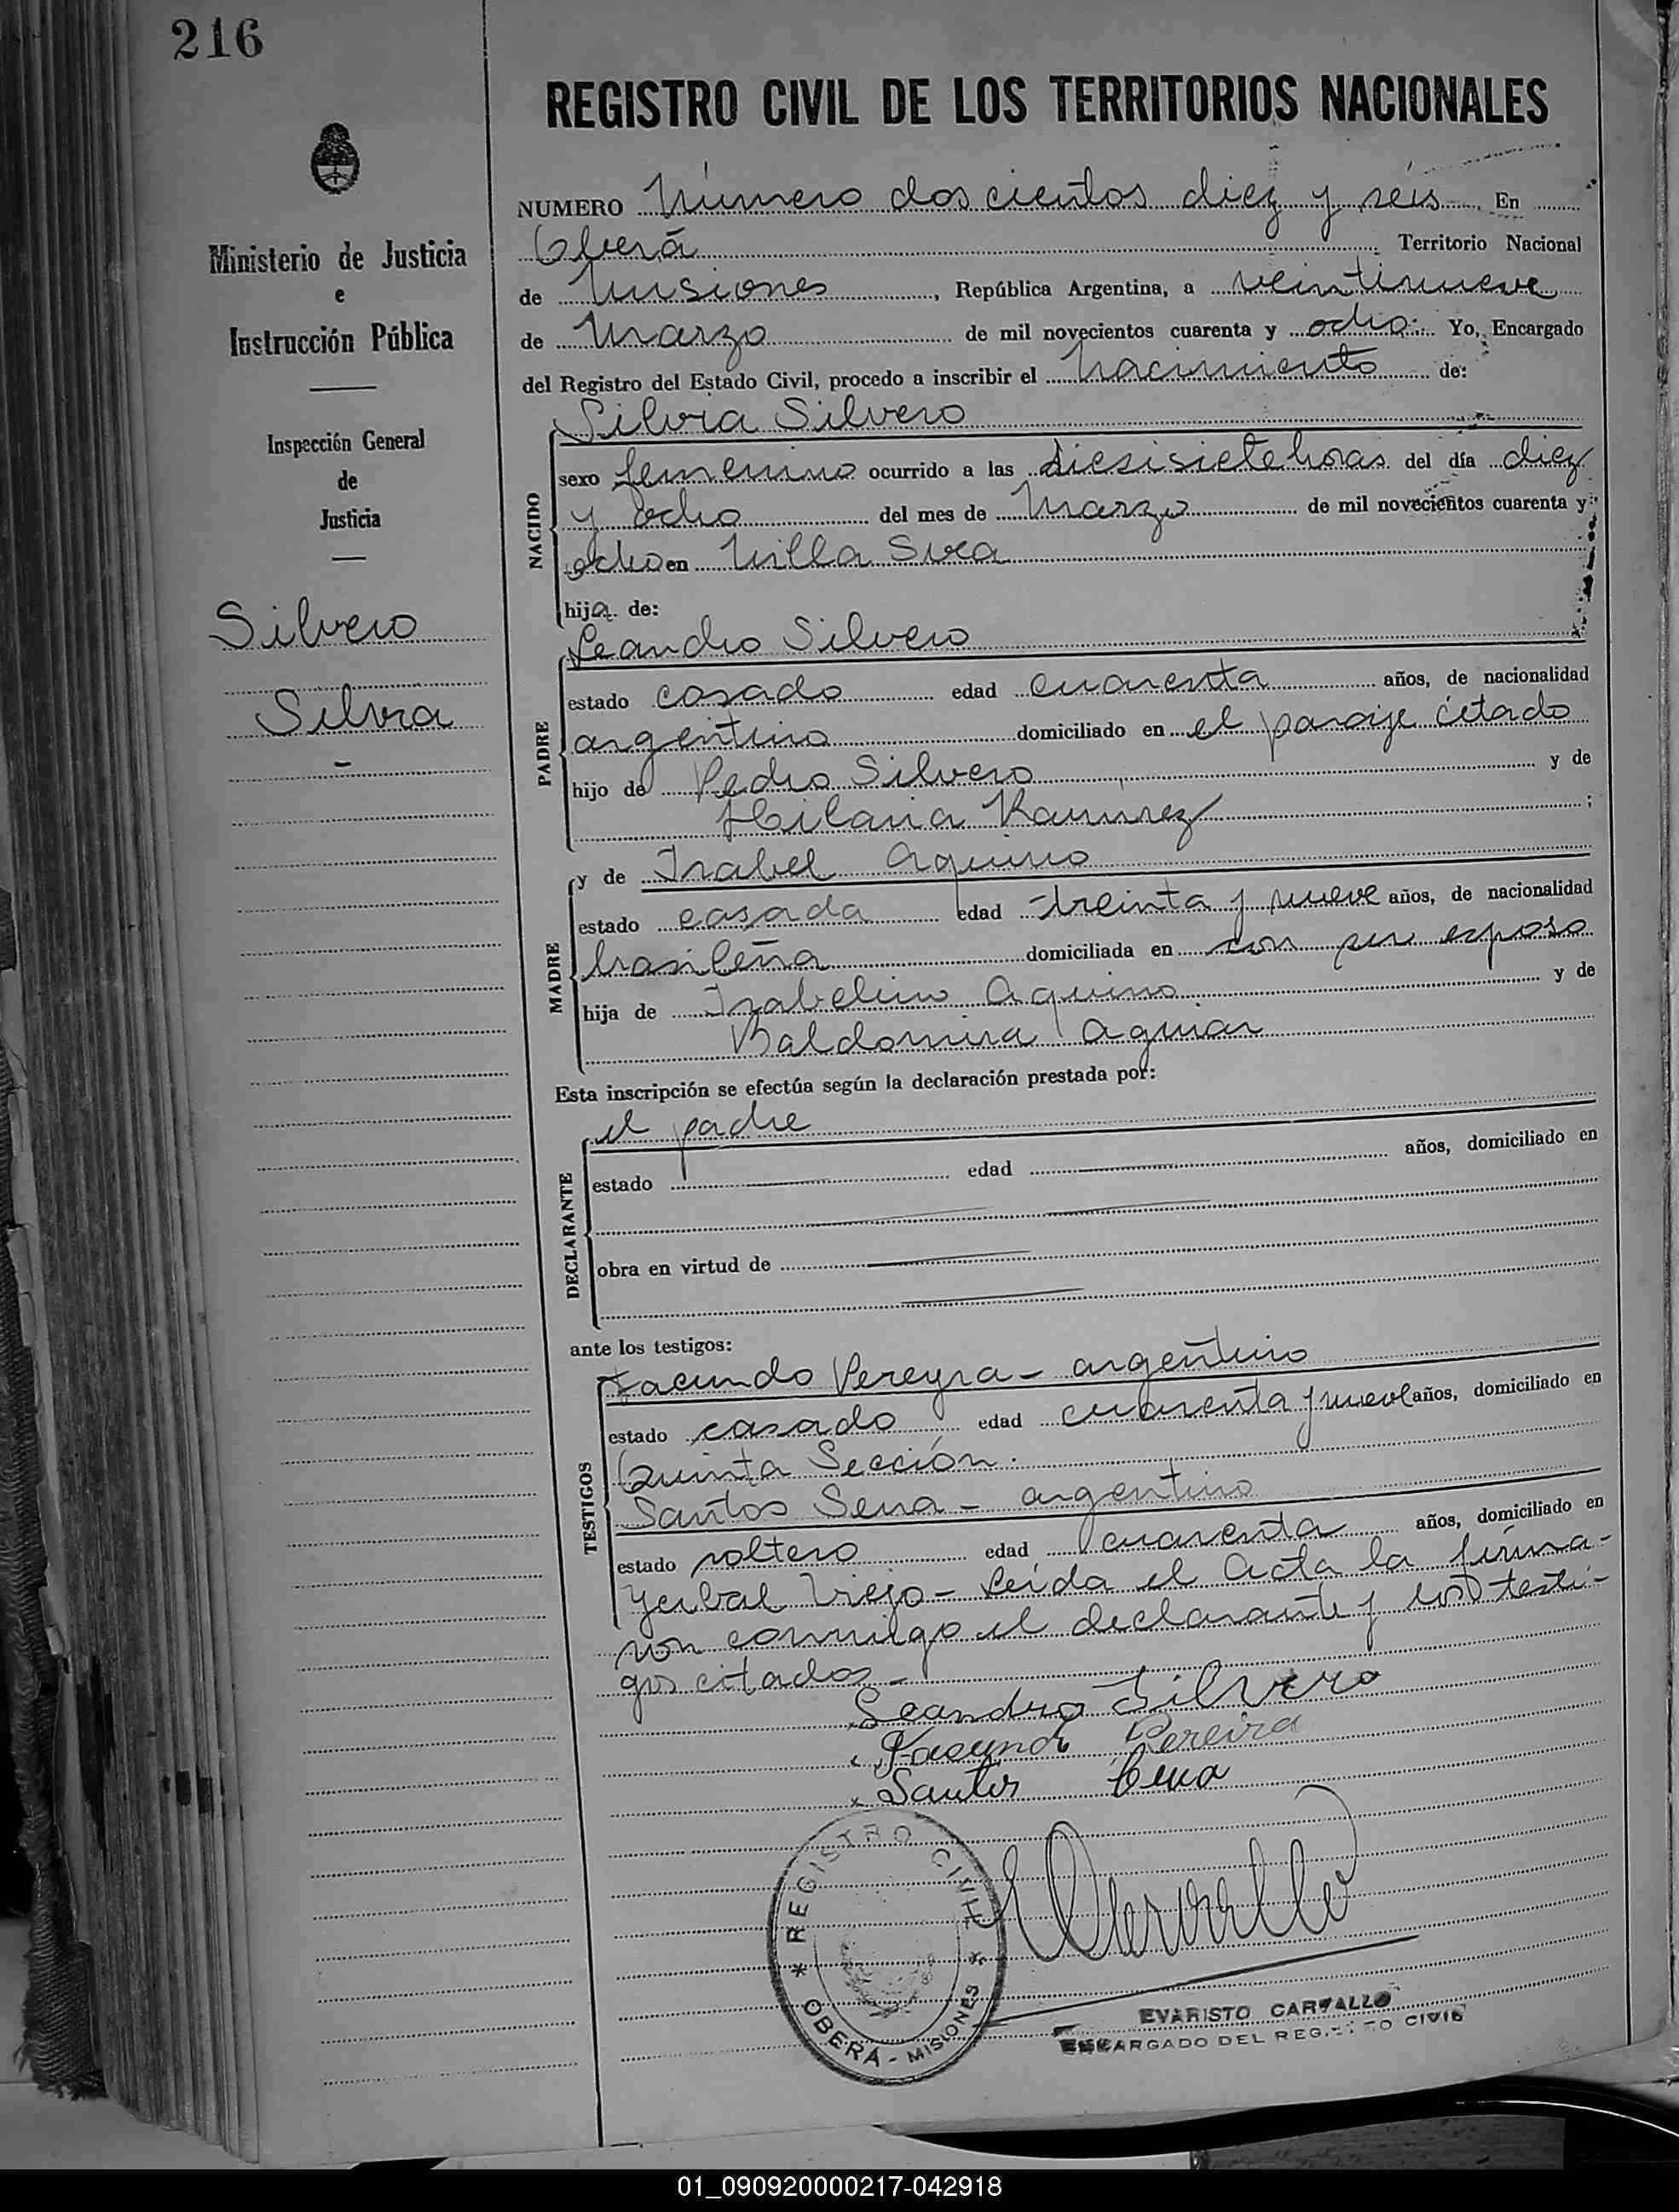 216
REGISTRO CIVIL DE LOS TERRITORIOS NACIONALES
Ministerio de Justicia
e
Instrucción Pública
Inspección General
de
Justicia
Silvero
Silvia
NUMERO Número doscientos diez y seis En
Oberá Territorio Nacional
de Misiones, República Argentina, a veintinueve
de Marzo de mil novecientos cuarenta y ocho. Yo, Encargado
del Registro del Estado Civil, procedo a inscribir el nacimiento de:
NACIDO
Silvia Silvero
sexo femenino ocurrido a las diesisiete horas del día diez
y ocho del mes de Marzo de mil novecientos cuarenta y
ocho en Villa
hija de:
PADRE
Leandro Silvero
estado casado edad cuarenta años, de nacionalidad
argentino domiciliado en el paraje citado
hijo de Pedro Silvero y de
Hilaria Ramírez;
MADRE
y de Isabel Aquino
estado casada edad treinta y nueve años, de nacionalidad
brasileña domiciliada en con su esposo
hija de Isabelino Aquino y de
Baldomira Aguiar
Esta inscripción se efectúa según la declaración prestada por:
DECLARANTE
el padre
estado edad años, domiciliado en
obra en virtud de
ante los testigos:
TESTIGOS
Facundo Pereyra - argentino
estado casado edad cuarenta y nueve años, domiciliado en
Quinta Sección.
Santos Sena - argentino
estado soltero edad cuarenta años, domiciliado en
Yerbal Viejo - Leída el Acta la firma-
ron conmigo el declarante y los testi-
gos citados -
Leandro Silvero
Facundo Pereira
Santos
REGISTRO CIVIL
* OBERÁ - MISIONES *
EVARISTO CARVALLO
ENCARGADO DEL REGISTRO CIVIL
01_090920000217-042918